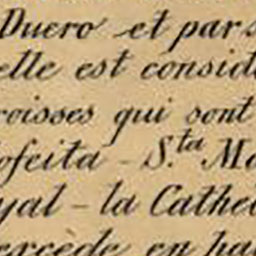 Duero et par s
elle est consid
roisses qui sont
ofeita - S.ta Ma
yal - la Cathe
excède en ha